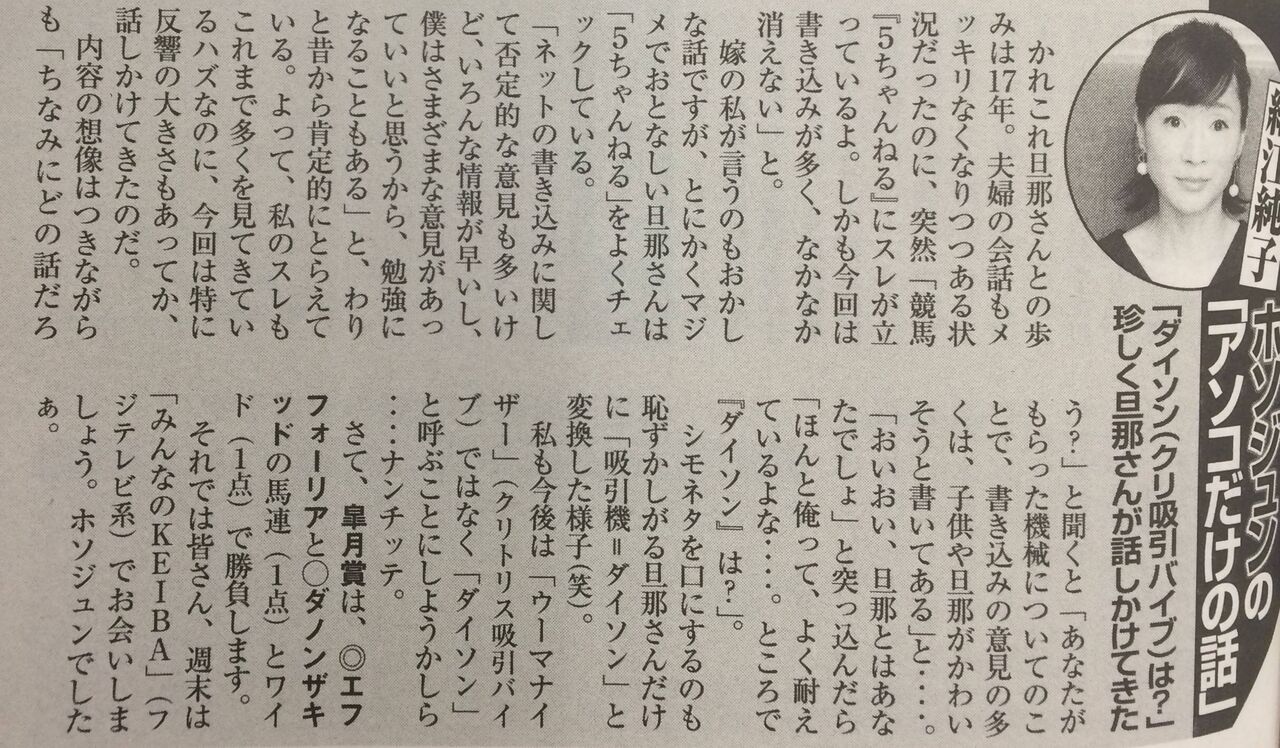 細江純子
ホソジュンの
「アソコだけの話」
「ダイソン(クリ吸引バイブ)は?」
珍しく旦那さんが話しかけてきた
かれこれ旦那さんとの歩
みは17年。夫婦の会話もメ
ッキリなくなりつつある状
況だったのに、突然「競馬
『5ちゃんねる』にスレが立
っているよ。しかも今回は
書き込みが多く、なかなか
消えない」と。
嫁の私が言うのもおかし
な話ですが、とにかくマジ
メでおとなしい旦那さんは
「5ちゃんねる」をよくチェ
ックしている。
「ネットの書き込みに関し
て否定的な意見も多いけ
ど、いろんな情報が早いし、
僕はさまざまな意見があっ
ていいと思うから、勉強に
なることもある」と、わり
と昔から肯定的にとらえて
いる。よって、私のスレも
これまで多くを見てきてい
るハズなのに、今回は特に
反響の大きさもあってか、
話しかけてきたのだ。
内容の想像はつきながら
も「ちなみにどの話だろ
う?」と聞くと「あなたが
もらった機械についてのこ
とで、書き込みの意見の多
くは、子供や旦那がかわい
そうと書いてある」と‥‥。
「おいおい、旦那とはあな
たでしょ」と突っ込んだら
「ほんと俺って、よく耐え
ているよな‥‥。ところで
『ダイソン』は?」。
シモネタを口にするのも
恥ずかしがる旦那さんだけ
に「吸引機＝ダイソン」と
変換した様子(笑)。
私も今後は「ウーマナイ
ザー」(クリトリス吸引バイ
ブ)ではなく「ダイソン」
と呼ぶことにしようかしら
‥‥ナンチッテ。
さて、皐月賞は、◎エフ
フォーリアと○ダノンザキ
ッドの馬連(1点)とワイ
ド(1点)で勝負します。
それでは皆さん、週末は
「みんなのKEIBA」(フ
ジテレビ系)でお会いしま
しょう。ホソジュンでした
ぁ。